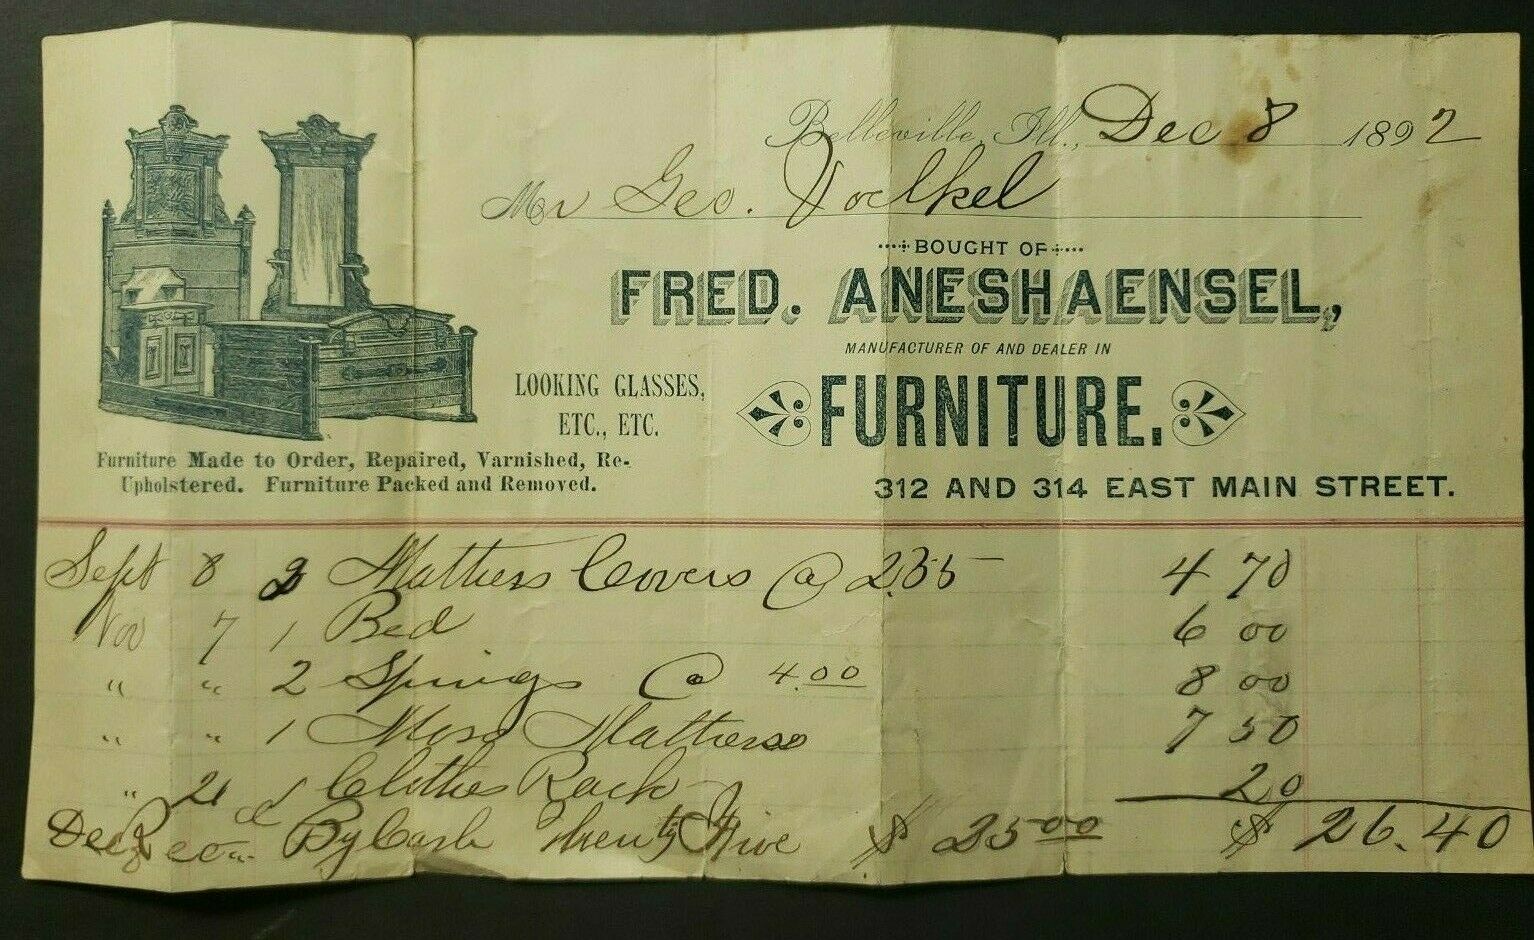 Belleville, Ill., Dec 8 1892
Mr Geo. Voelkel
BOUGHT OF
FRED. ANESHAENSEL,
MANUFACTURER OF AND DEALER IN
LOOKING GLASSES,
ETC., ETC.
FURNITURE.
Furniture Made to Order, Repaired, Varnished, Re-
Upholstered. Furniture Packed and Removed.
312 AND 314 EAST MAIN STREET.
Sept 8 2 Mattress Covers @ 2.35 4 70
Nov 7 1 Bed 6 00
" " 2 Springs @ 4.00 8 00
" " 1 Moss Mattress 7 50
" 21 1 Clothes Rack 20
Dec By Cash Twenty Five $ 25 00 $ 26.40